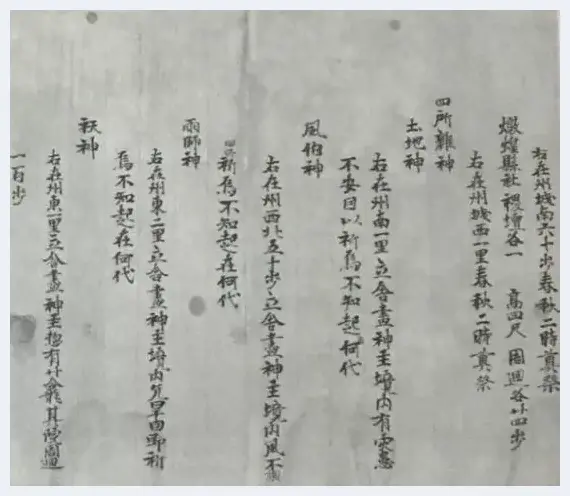 右在州城南六十步春秋二時奠祭
燉煌縣社稷壇各一 高四尺 周迴各廿四步
右在州城西一里春秋二時奠祭
四所雜神
土地神
右在州南一里立舍畫神主境內有災患
不安因以祈焉不知起何代
風伯神
右在州西北五十步立舍畫神主境內風不
調因即祈焉不知起在何代
雨師神
右在州東二里立舍畫神主境內亢旱因即祈
焉不知起在何代
祆神
右在州東一里立舍畫神主惣有廿龕其院周迴
一百步